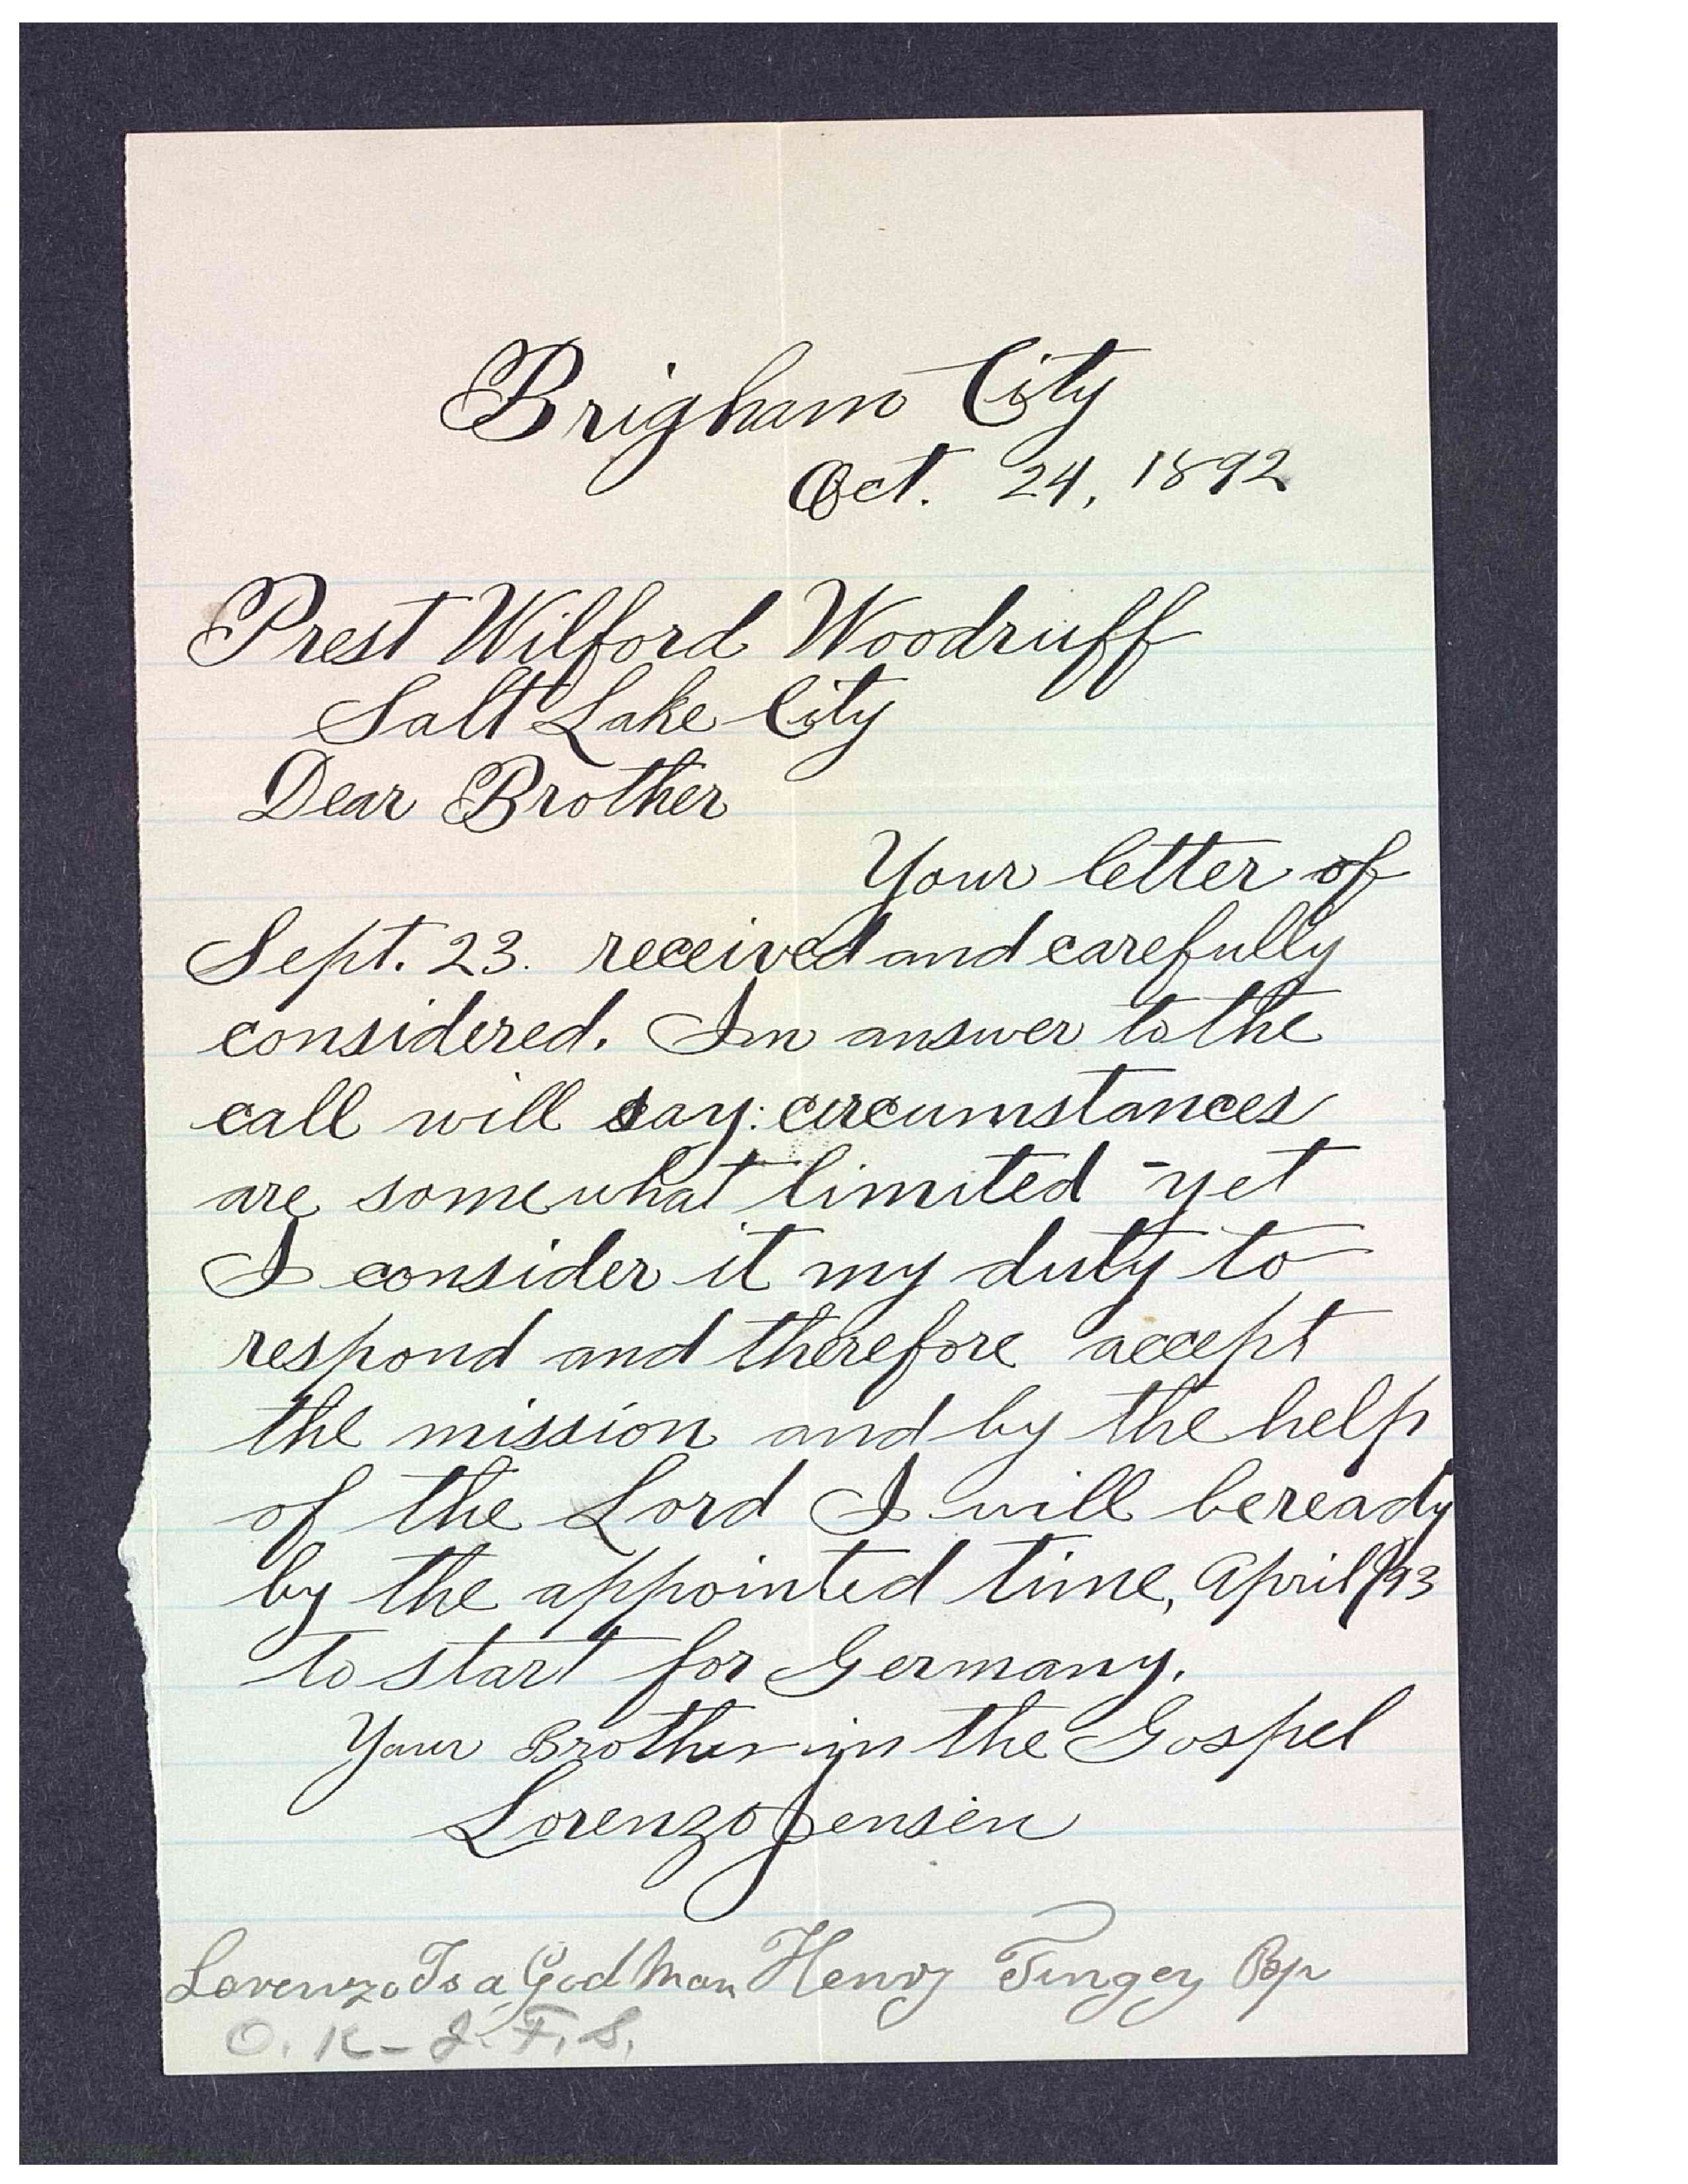 Brigham City
Oct. 24, 1892
Prest Wilford Woodruff
Salt Lake City
Dear Brother
Your letter of
Sept. 23. received and carefully
considered. In answer to the
call will say: circumstances
are somewhat limited - yet
I consider it my duty to
respond and therefore accept
the mission and by the help
of the Lord I will be ready
by the appointed time, April /93
to start for Germany.
Your Brother in the Gospel
Lorenzo Jensen
Lorenzo Is a God Man Henry Tingey Bp
O. K - J. F. S.